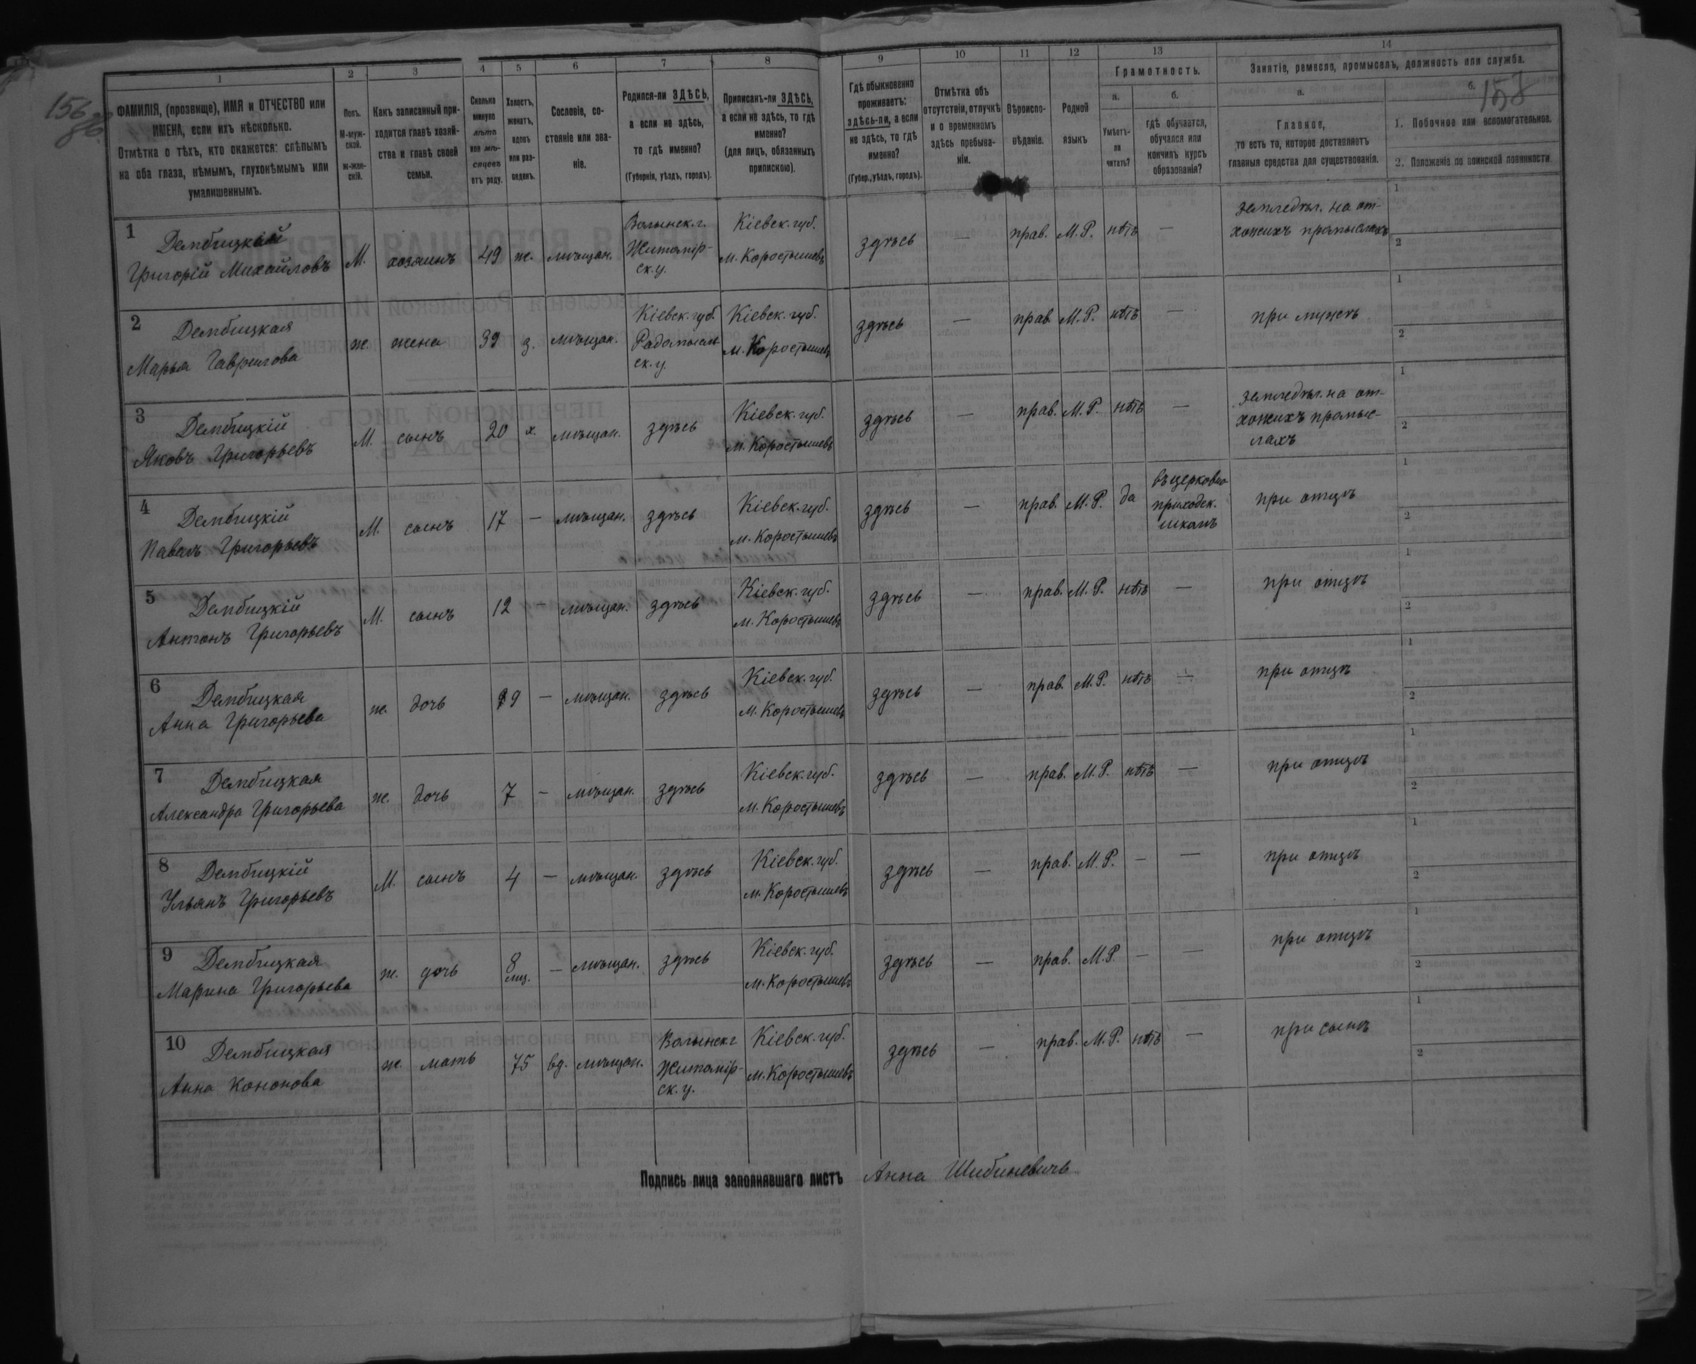 156
об.
158
1
2
3
4
5
6
7
8
9
10
11
12
13
14
ФАМИЛІЯ, (прозвище), ИМЯ и ОТЧЕСТВО или
ИМЕНА, если ихъ нѣсколько.
Отмѣтка о тѣхъ, кто окажется: слѣпымъ
на оба глаза, нѣмымъ, глухонѣмымъ или
умалишеннымъ.
Полъ.
М-муж-
ской.
ж-жен-
скій.
Какъ записанный при-
ходится главѣ хозяй-
ства и главѣ своей
семьи.
Сколько
минуло
лѣтъ
или мѣ-
сяцевъ
отъ роду.
Холостъ,
женатъ,
вдовъ
или раз-
веденъ.
Сословіе, со-
стояніе или зва-
ніе.
Родился-ли ЗДѢСЬ,
а если не здѣсь,
то гдѣ именно?
(Губернія, уѣздъ, городъ).
Приписанъ-ли ЗДѢСЬ,
а если не здѣсь, то гдѣ
именно?
(для лицъ, обязанныхъ
припискою).
Гдѣ обыкновенно
проживаетъ:
здѣсь-ли, а если
не здѣсь, то гдѣ
именно?
(Губер., уѣздъ, городъ).
Отмѣтка объ
отсутствіи, отлучкѣ
и о временномъ
здѣсь пребыва-
ніи.
Вѣроиспо-
вѣданіе.
Родной
языкъ
Грамотность.
а.
б.
Умѣетъ-
ли
читать?
гдѣ обучается,
обучался или
кончилъ курсъ
образованія?
Занятіе, ремесло, промыселъ, должность или служба.
а.
б.
Главное,
то есть то, которое доставляетъ
главныя средства для существованія.
1. Побочное или вспомогательное.
2. Положеніе по воинской повинности
1 Дембицкій
Григорій Михайловъ
М. хозяинъ 49 ж. мѣщан.
Волынск. г.
Житомір-
ск. у.
Кіевск. губ.
м. Коростышевъ
здѣсь — прав. М. Р. нѣтъ —
земледѣл. на от-
хожихъ промыслахъ
1
2
2 Дембицкая
Марья Гаврилова
ж. жена 39 з. мѣщан.
Кіевск. губ.
Радомысль-
ск. у.
Кіевск. губ.
м. Коростышевъ
здѣсь — прав. М. Р. нѣтъ —
при мужѣ
1
2
3 Дембицкій
Яковъ Григорьевъ
М. сынъ 20 х. мѣщан. здѣсь
Кіевск. губ.
м. Коростышевъ
здѣсь — прав. М. Р. нѣтъ —
земледѣл. на от-
хожихъ промыс-
лахъ
1
2
4 Дембицкій
Павелъ Григорьевъ
М. сынъ 17 — мѣщан. здѣсь
Кіевск. губ.
м. Коростышевъ
здѣсь — прав. М. Р. да
въ церковно
приходск.
школѣ
при отцѣ
1
2
5 Дембицкій
Антонъ Григорьевъ
М. сынъ 12 — мѣщан. здѣсь
Кіевск. губ.
м. Коростышевъ
здѣсь — прав. М. Р. нѣтъ —
при отцѣ
1
2
6 Дембицкая
Анна Григорьева
ж. дочь 9 — мѣщан. здѣсь
Кіевск. губ.
м. Коростышевъ
здѣсь — прав. М. Р. нѣтъ —
при отцѣ
1
2
7 Дембицкая
Александра Григорьева
ж. дочь 7 — мѣщан. здѣсь
Кіевск. губ.
м. Коростышевъ
здѣсь — прав. М. Р. нѣтъ —
при отцѣ
1
2
8 Дембицкій
Ульянъ Григорьевъ
М. сынъ 4 — мѣщан. здѣсь
Кіевск. губ.
м. Коростышевъ
здѣсь — прав. М. Р. — —
при отцѣ
1
2
9 Дембицкая
Марина Григорьева
ж. дочь 8 мц. — мѣщан. здѣсь
Кіевск. губ.
м. Коростышевъ
здѣсь — прав. М. Р — —
при отцѣ
1
2
10 Дембицкая
Анна Кононова
ж. мать 75 вд. мѣщан.
Волынск г
Житомір-
ск. у.
Кіевск. губ.
м. Коростышевъ
здѣсь — прав. М. Р. нѣтъ —
при сынѣ
1
2
Подпись лица заполнявшаго листъ Анна Шибиневичъ